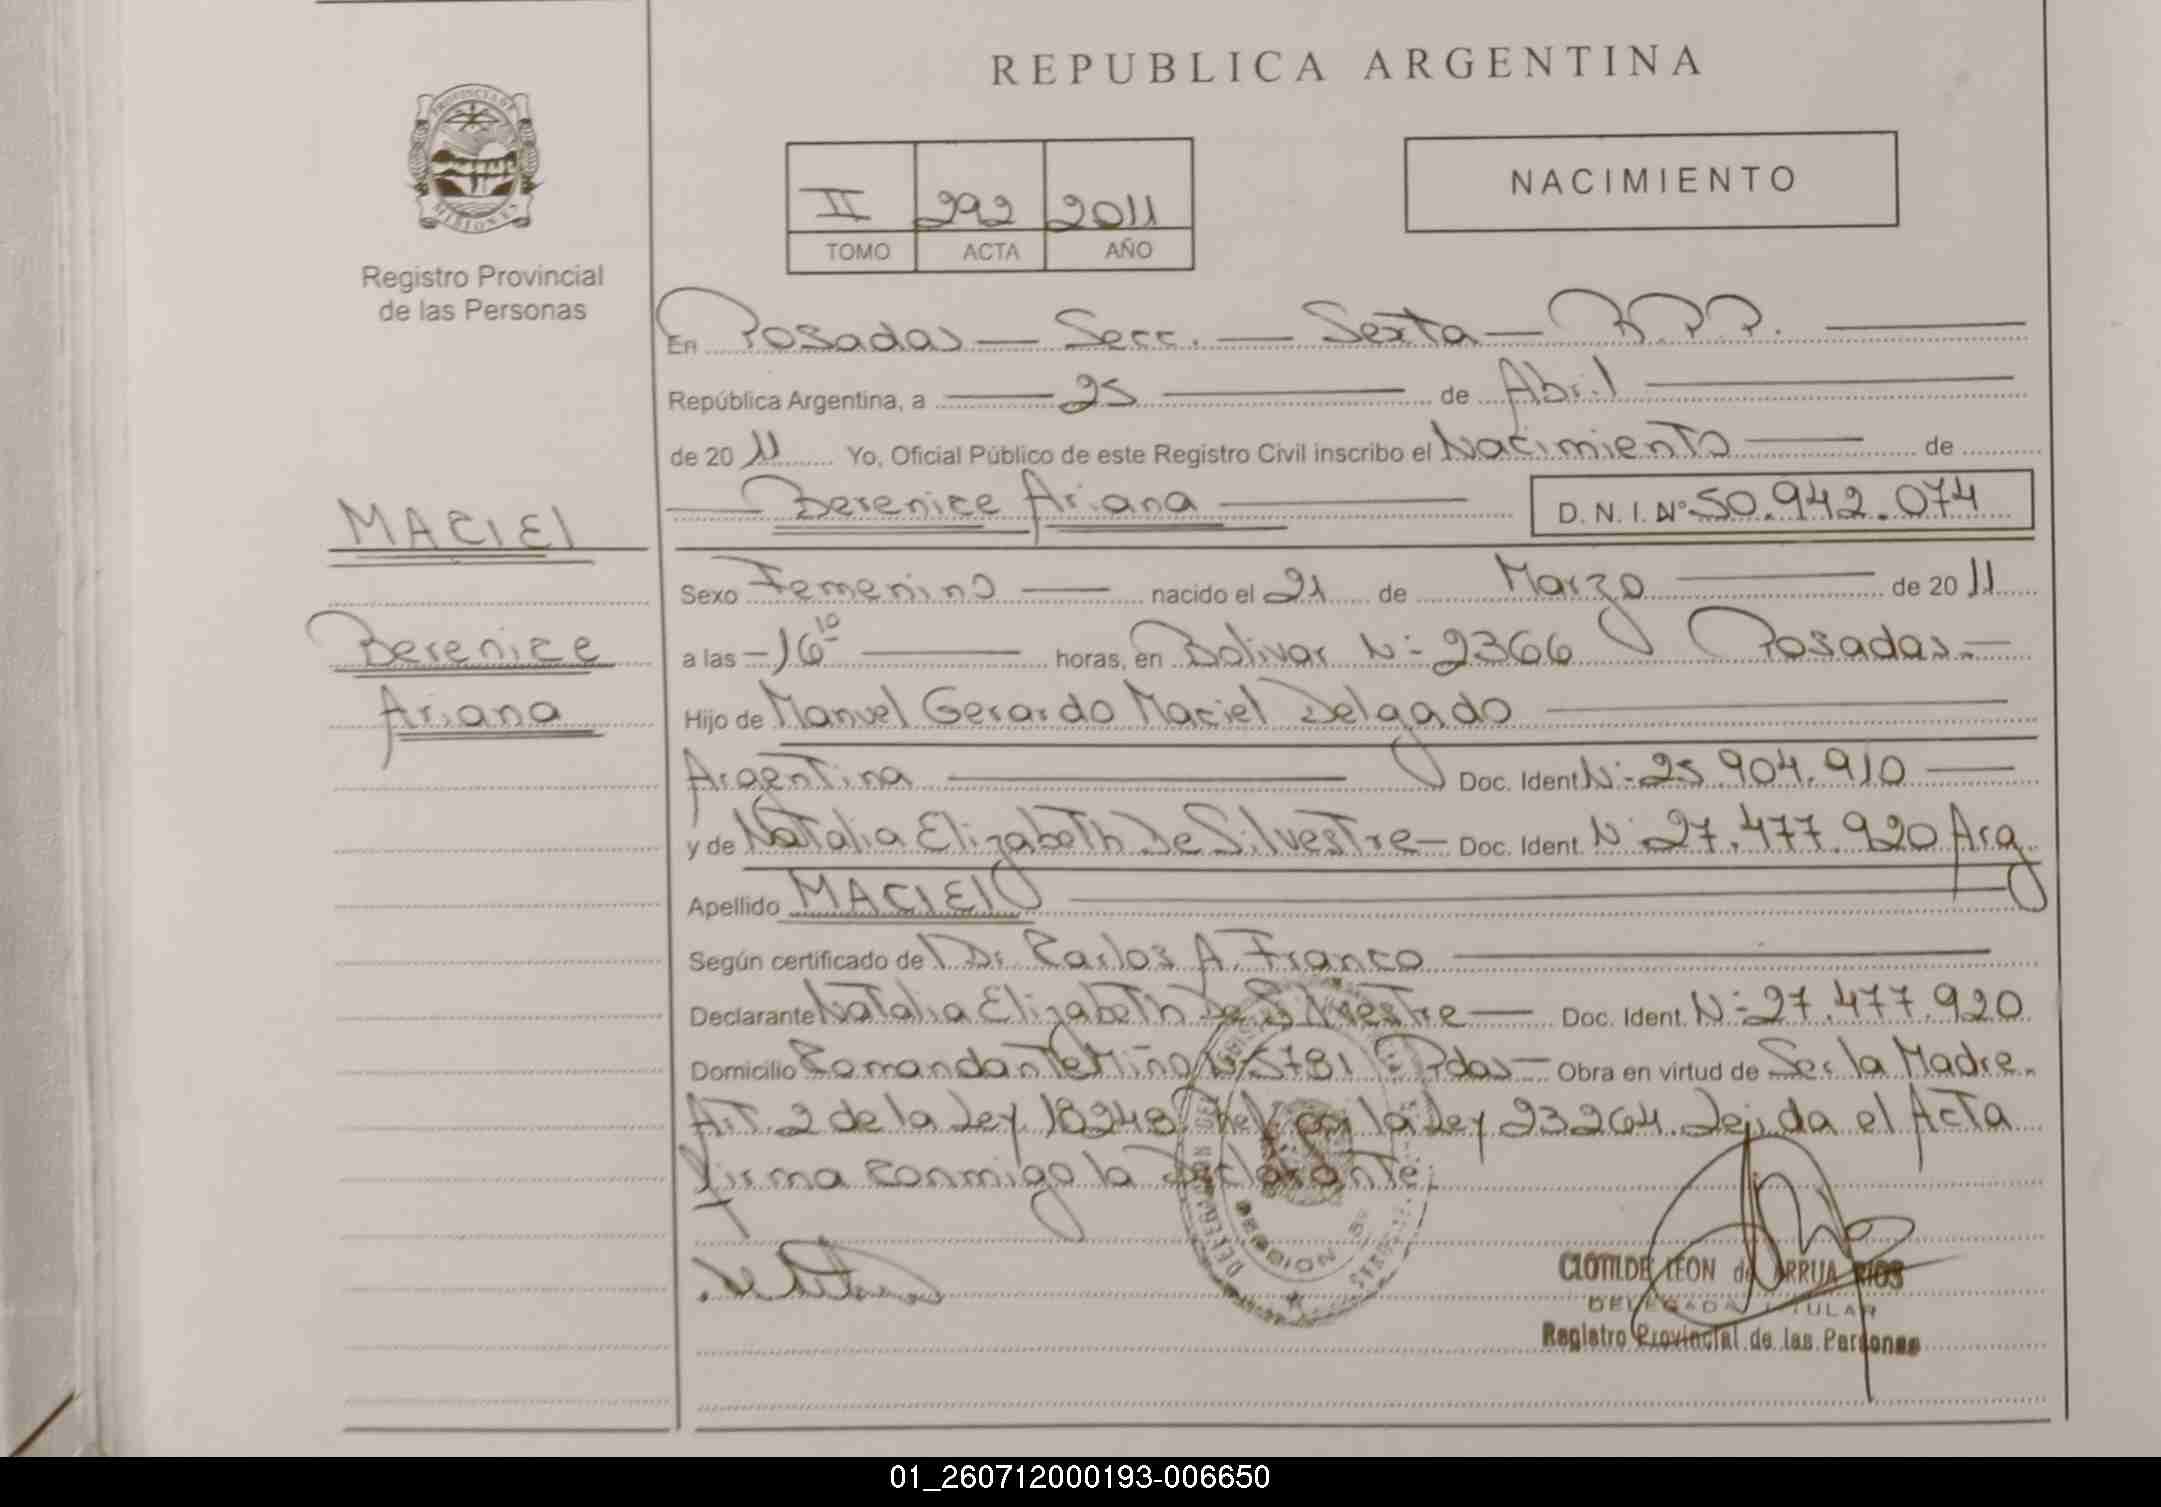 REPUBLICA ARGENTINA
PROVINCIA DE
MISIONES
Registro Provincial
de las Personas
II 292 2011
TOMO ACTA AÑO
NACIMIENTO
En Posadas — Secc. — Sexta — R.P.P.
República Argentina, a 25 de Abril
de 20 11 Yo, Oficial Público de este Registro Civil inscribo el Nacimiento de
Berenice Ariana D.N.I. Nº 50.942.074
MACIEl
Berenice
Ariana
Sexo Femenino nacido el 21 de Marzo de 20 11
a las -16 10 horas, en Bolivar Nº 2366 Posadas.-
Hijo de Manuel Gerardo Maciel Delgado
Argentina Doc. Ident Nº 25.904.910
y de Natalia Elizabeth De Silvestre — Doc. Ident. Nº 27.477.920 Arg.
Apellido MACIEl
Según certificado de Dr. Carlos A. Franco
Declarante Natalia Elizabeth De Silvestre — Doc. Ident. Nº 27.477.920
Domicilio Comandante Miño Nº 5781 Pdas — Obra en virtud de Ser la Madre.
Art. 2 de la Ley 18248 por la Ley 23264. Leida el Acta
firma conmigo la Declarante.
CLOTILDE LEON de ARRUA RIOS
DELEGADA TITULAR
Registro Provincial de las Personas
01_260712000193-006650